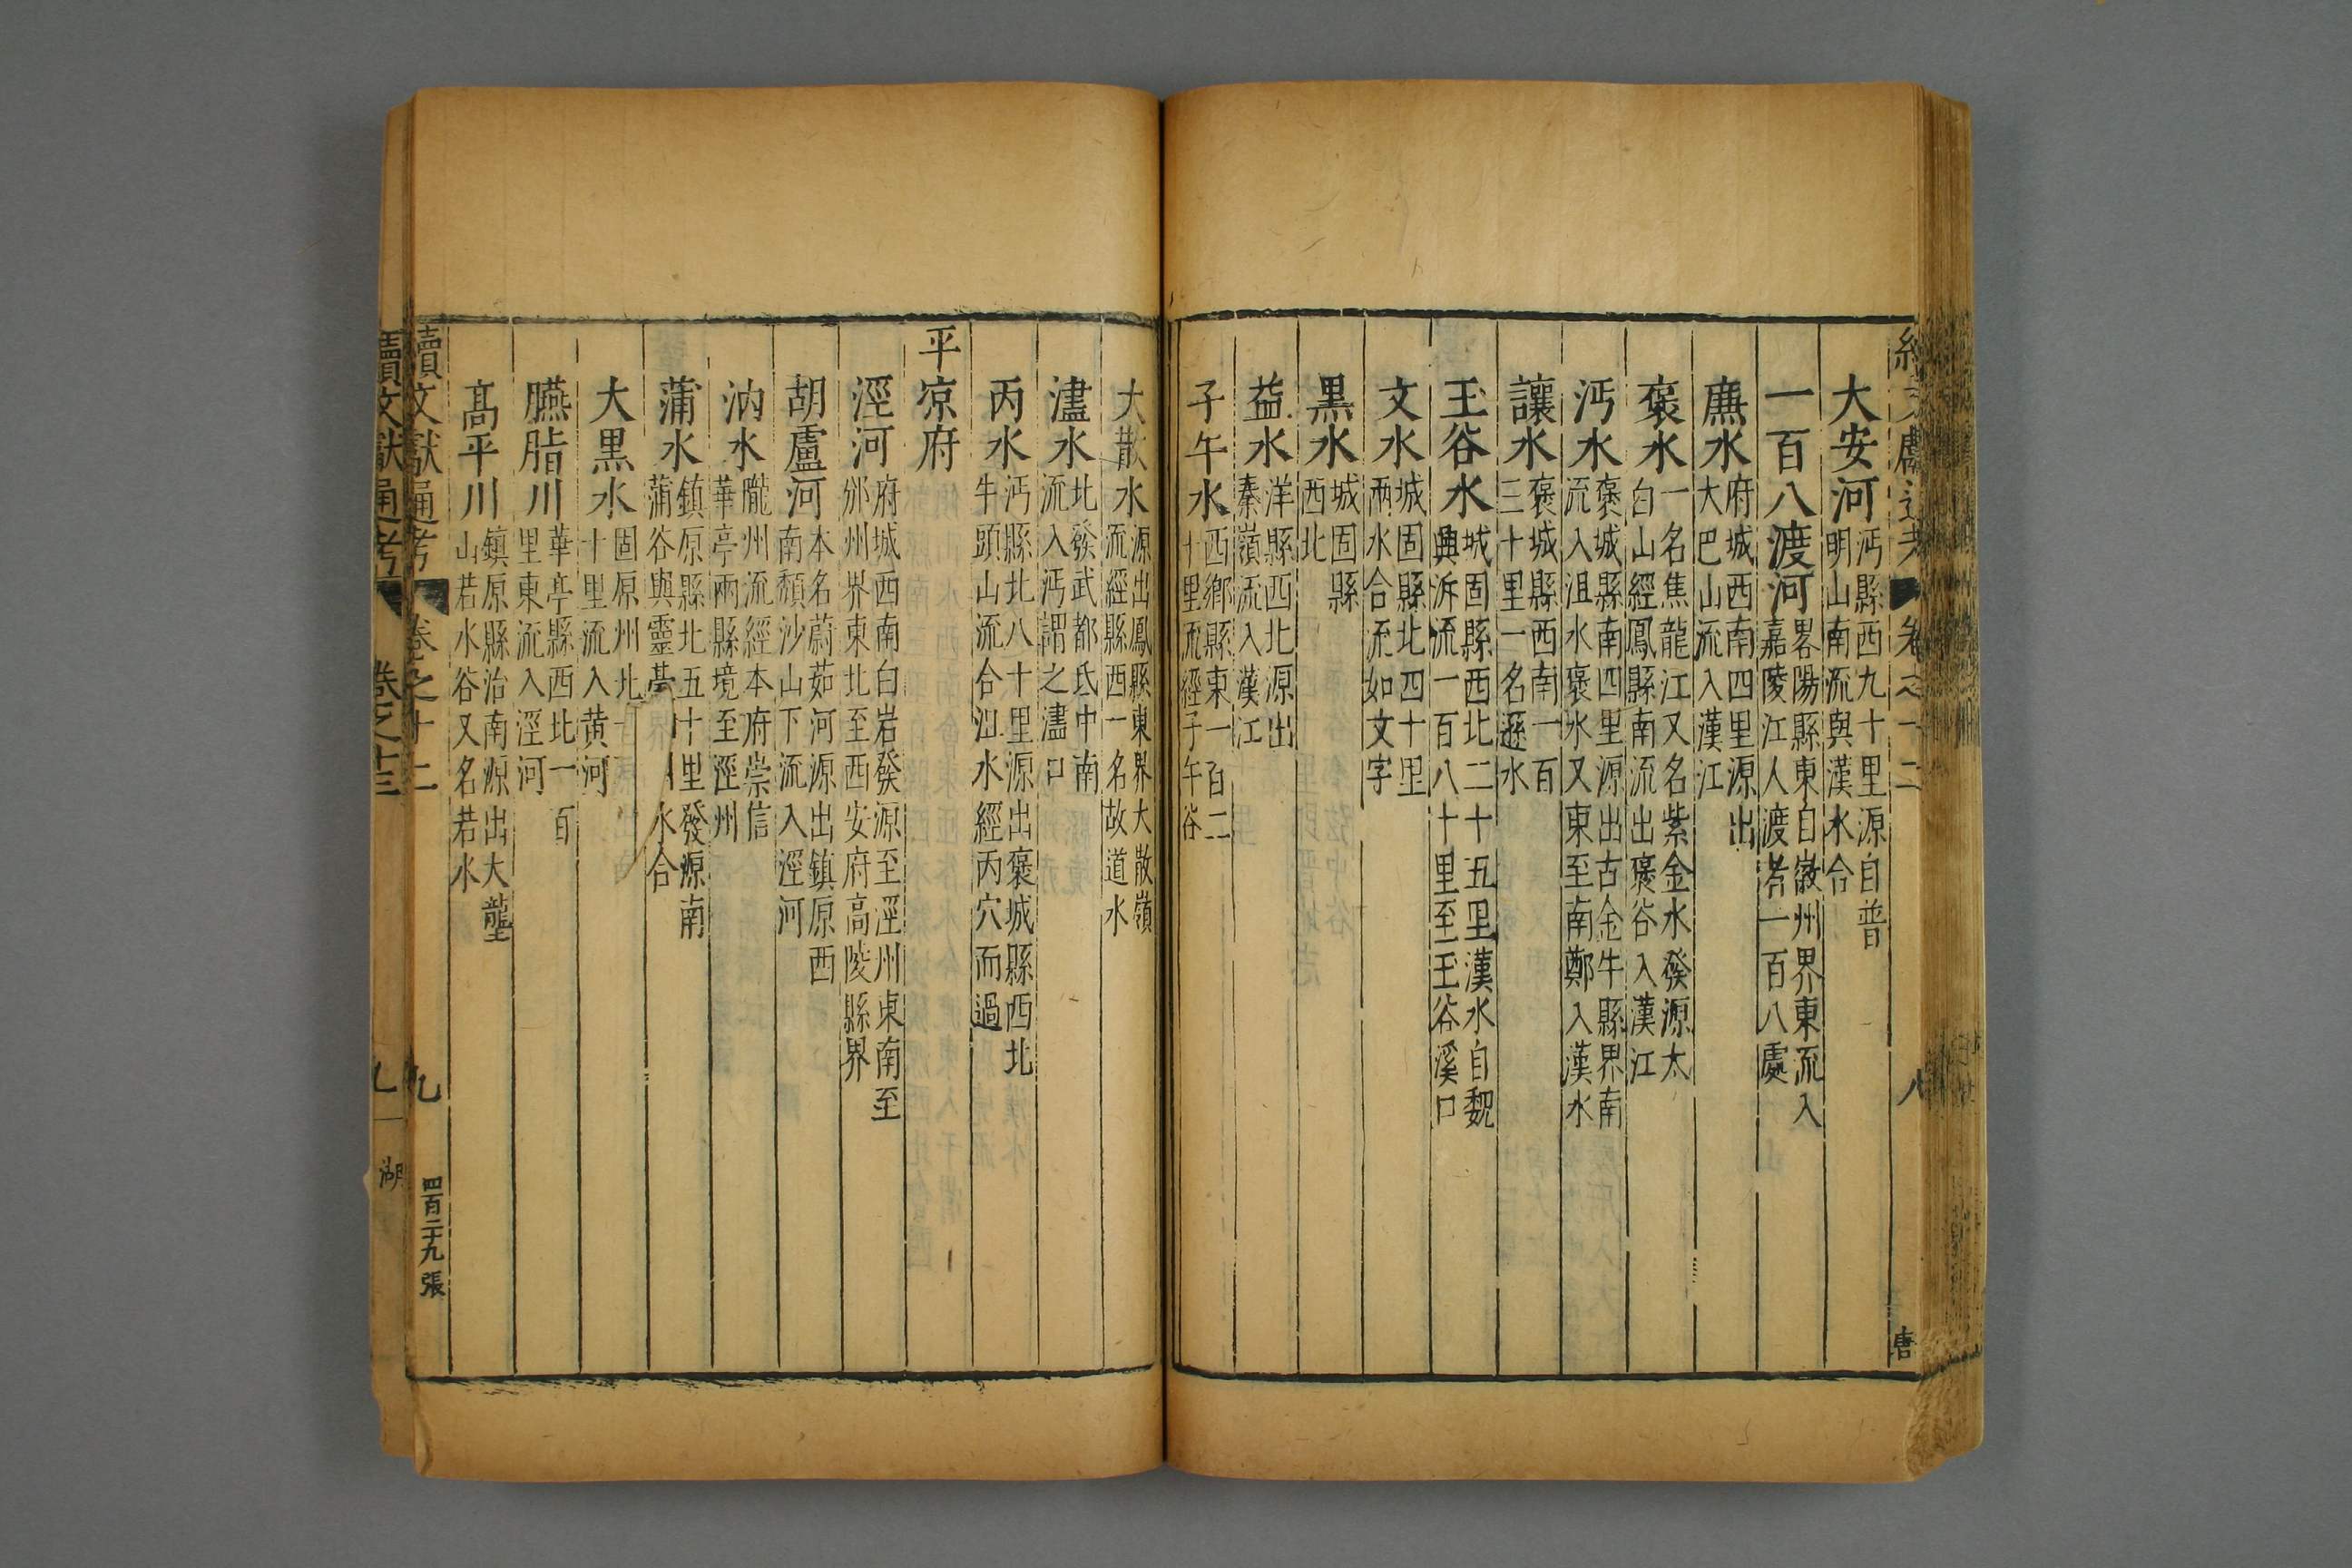 大安河沔縣西九十里源自普明山南流與漢水合
一百八渡河畧陽縣東自徽州界東流入嘉陵江人渡者一百八處
廉水府城西南四里源出大巴山流入漢江
褒水一名焦龍江又名紫金水發源太白山經鳳縣南流出褒谷入漢江
沔水褒城縣南四里源出古金牛縣界南流入沮水褒水又東至南鄭入漢水
讓水褒城縣西南一百三十里一名遜水
王谷水城固縣西北二十五里漢水自魏興泝流一百八十里至王谷溪口
文水城固縣北四十里兩水合流如文字
黒水城固縣西北
益水洋縣西北源出秦嶺流入漢江
子午水西鄉縣東一百二十里流經子午谷
大散水源出鳳縣東界大散嶺流經縣西一名故道水
濜水北發武都氐中南流入沔謂之濜口
丙水沔縣北八十里源出褒城縣西北牛頭山流合沮水經丙穴而過
平凉府
涇河府城西南白岩發源至涇州東南至邠州界東北至西安府高陵縣界
胡盧河本名蔚茹河源出鎮原西南頹沙山下流入涇河
汭水隴州流經本府崇信華亭兩縣境至涇州
蒲水鎮原縣北五十里發源南蒲谷與靈䑓水合
大黒水固原州北十里流入黄河
臙脂川華亭縣西北一百里東流入涇河
髙平川鎮原縣治南源出大壟山若水谷又名若水
續文獻通考 卷之十二 九 四百二十九張
續文獻通考 卷之十三 九 湖
卷之十二 八 唐